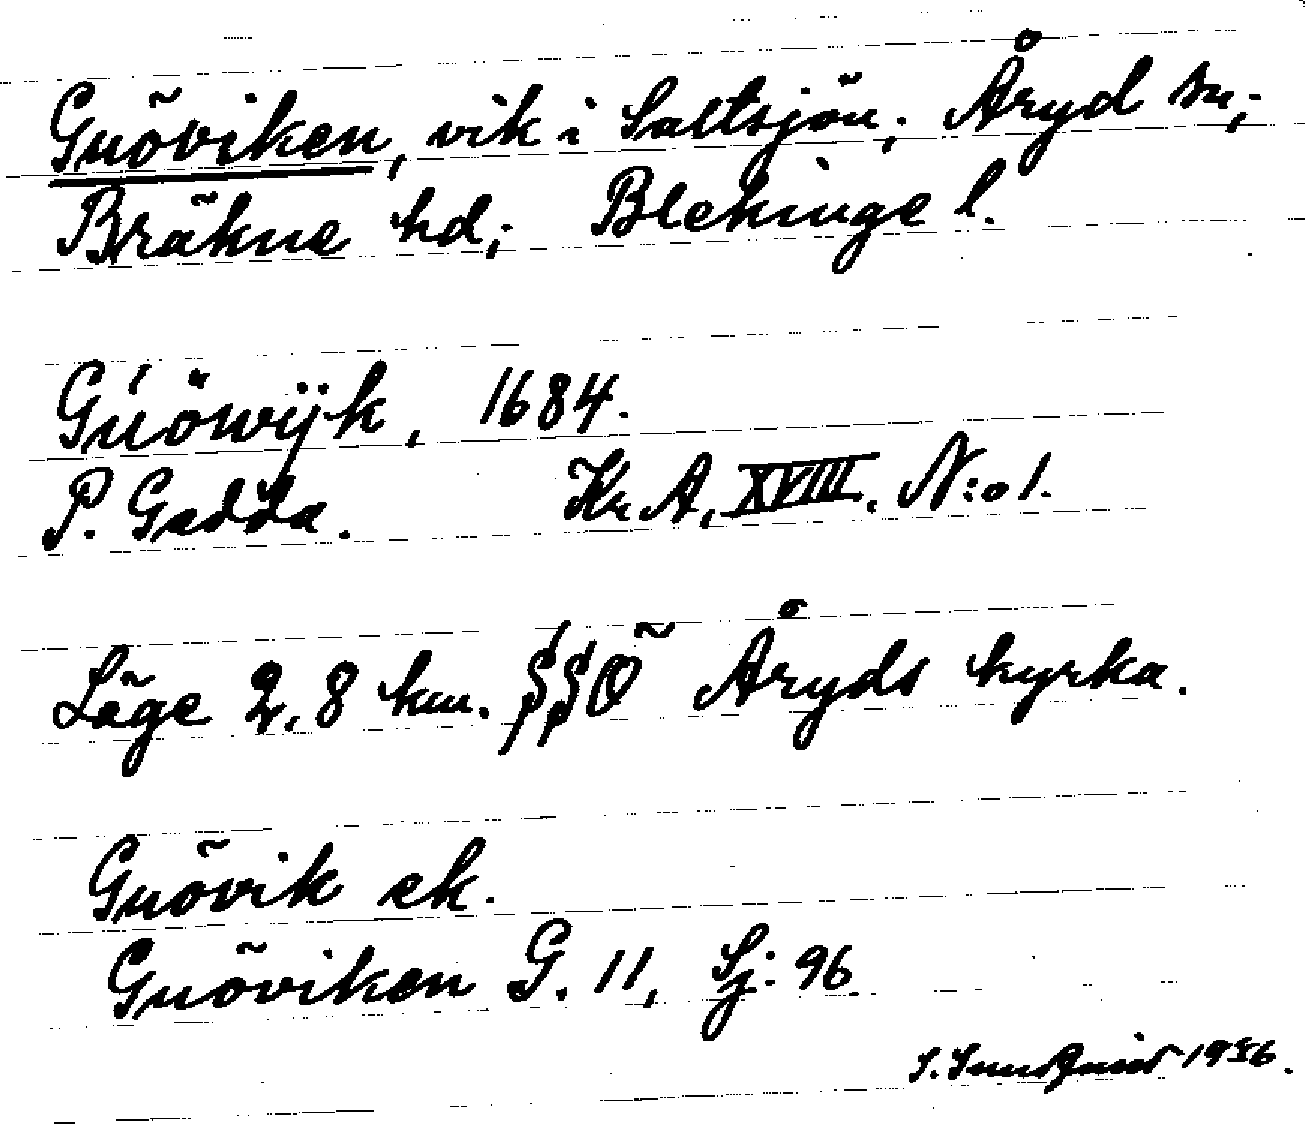 Gnöviken, vik i Saltsjön; Åryd sn;
Bräkne hd; Blekinge l.
Gnöwijk, 1684.
P. Gedda. Kr A, XVIII. N:o 1.
Läge 2,8 km. SSÖ Åryds kyrka.
Gnövik ek.
Gnöviken G. 11, Sj: 96
1936.